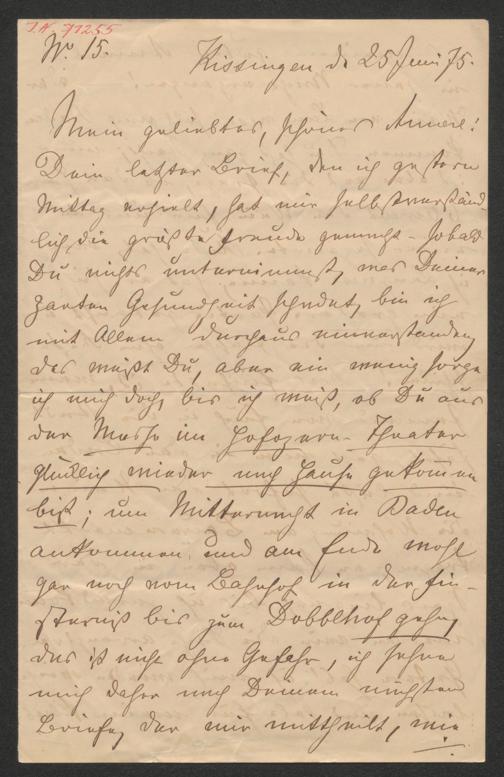 I.N. 71255
Nº 15.
Kissingen d. 25 Juni 75.
Mein geliebtes, schönes Annerl!
Dein letzter Brief, den ich gestern
Mittag erhielt, hat mir selbstverständ-
lich die größte Freude gemacht – sobald
Du nichts unternimmst, was Deiner
zarten Gesundheit schadet, bin ich
mit Allem durchaus einverstanden,
das weißt Du, aber ein wenig sorge
ich mich doch, bis ich weiß, ob Du aus
der Messe im Hofopern-Theater
glücklich wieder nach Hause gekommen
bist; um Mitternacht in Baden
ankommen und am Ende wohl
gar noch vom Bahnhof in der Fin-
sterniß bis zum Dobblhof gehn,
das ist nicht ohne Gefahr, ich sehne
mich daher nach Deinem nächsten
Briefe, der mir mittheilt, wie